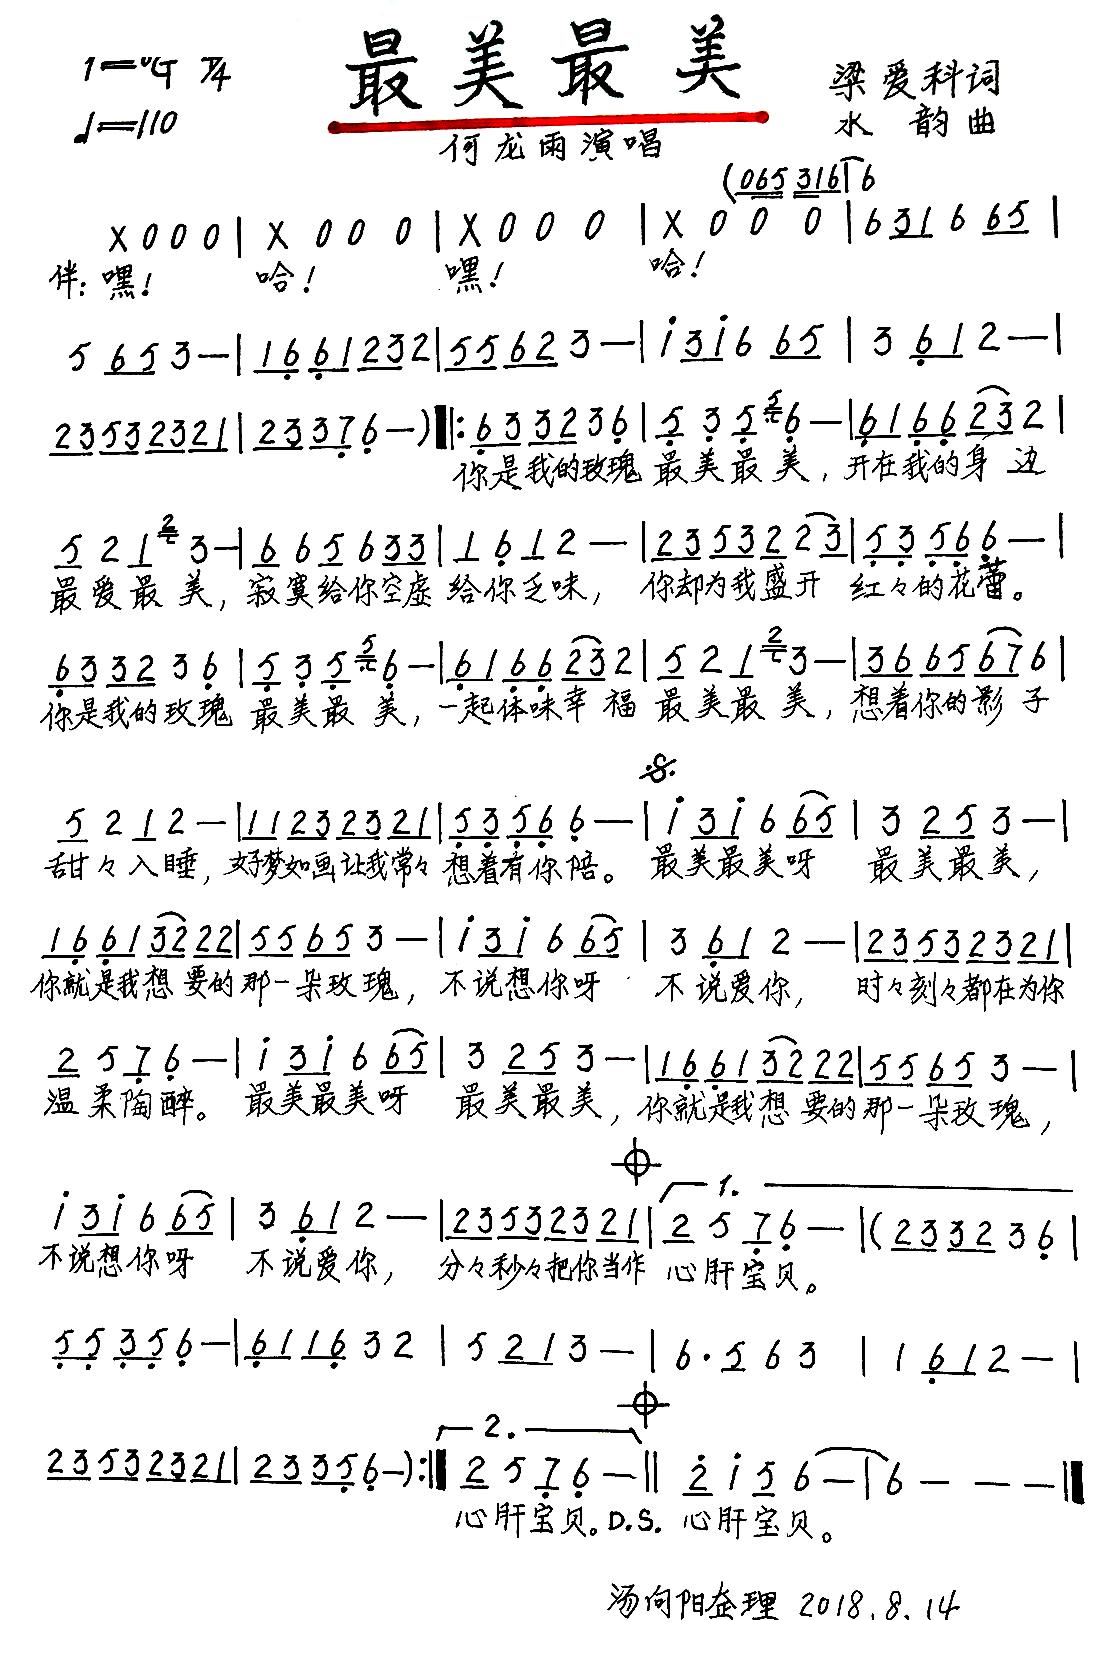 1=♭G 4/4
最美最美
梁爱科词
♩=110
水 韵 曲
何龙雨演唱
(065 316 1 6
X 0 0 0 | X 0 0 0 | X 0 0 0 | X 0 0 0 | 6 31 6 65 |
伴：嘿！ 哈！ 嘿！ 哈！
5 65 3 — | 16 61 23 2 | 55 62 3 — | i 3i 6 65 | 3 61 2 — |
23532321 | 2337 6 — ) ‖: 6332 3 6 | 5 3 5 5 6 — | 6166 23 2 |
你是我的玫瑰 最美最美，开在我的身边
5 2 1 2 3 — | 6 6 5 6 33 | 1 6 1 2 — | 2353 2 2 3 | 5 3 5 6 6 — |
最爱最美，寂寞给你空虚 给你乏味，你却为我盛开 红々的花蕾。
6332 3 6 | 5 3 5 5 6 — | 6166 23 2 | 5 2 1 2 3 — | 3665 67 6 |
你是我的玫瑰 最美最美，一起体味幸福 最美最美，想着你的影子
𝄋
5 2 1 2 — | 11232321 | 5 3 5 6 6 — | i 3i 6 65 | 3 25 3 — |
甜々入睡，好梦如画让我常々 想着有你陪。 最美最美呀 最美最美，
1661 32 22 | 5565 3 — | i 3i 6 65 | 3 61 2 — | 23532321 |
你就是我想要的那一朵玫瑰，不说想你呀 不说爱你，时々刻々都在为你
2 5 7 6 — | i 3i 6 65 | 3 25 3 — | 1661 32 22 | 5565 3 — |
温柔陶醉。 最美最美呀 最美最美，你就是我想要的那一朵玫瑰，
𝄌 1.
i 3i 6 65 | 3 61 2 — | 23532321 | 2 5 7 6 — | (2332 3 6 |
不说想你呀 不说爱你，分々秒々把你当作 心肝宝贝。
5 5 3 5 6 — | 6116 3 2 | 5 21 3 — | 6· 5 6 3 | 1 61 2 — |
2. 𝄌
23532321 | 2335 6 — ) :‖ 2 5 7 6 — ‖ 2 i 5 6 — | 6 — — — ‖
心肝宝贝。D.S. 心肝宝贝。
汤向阳整理 2018.8.14